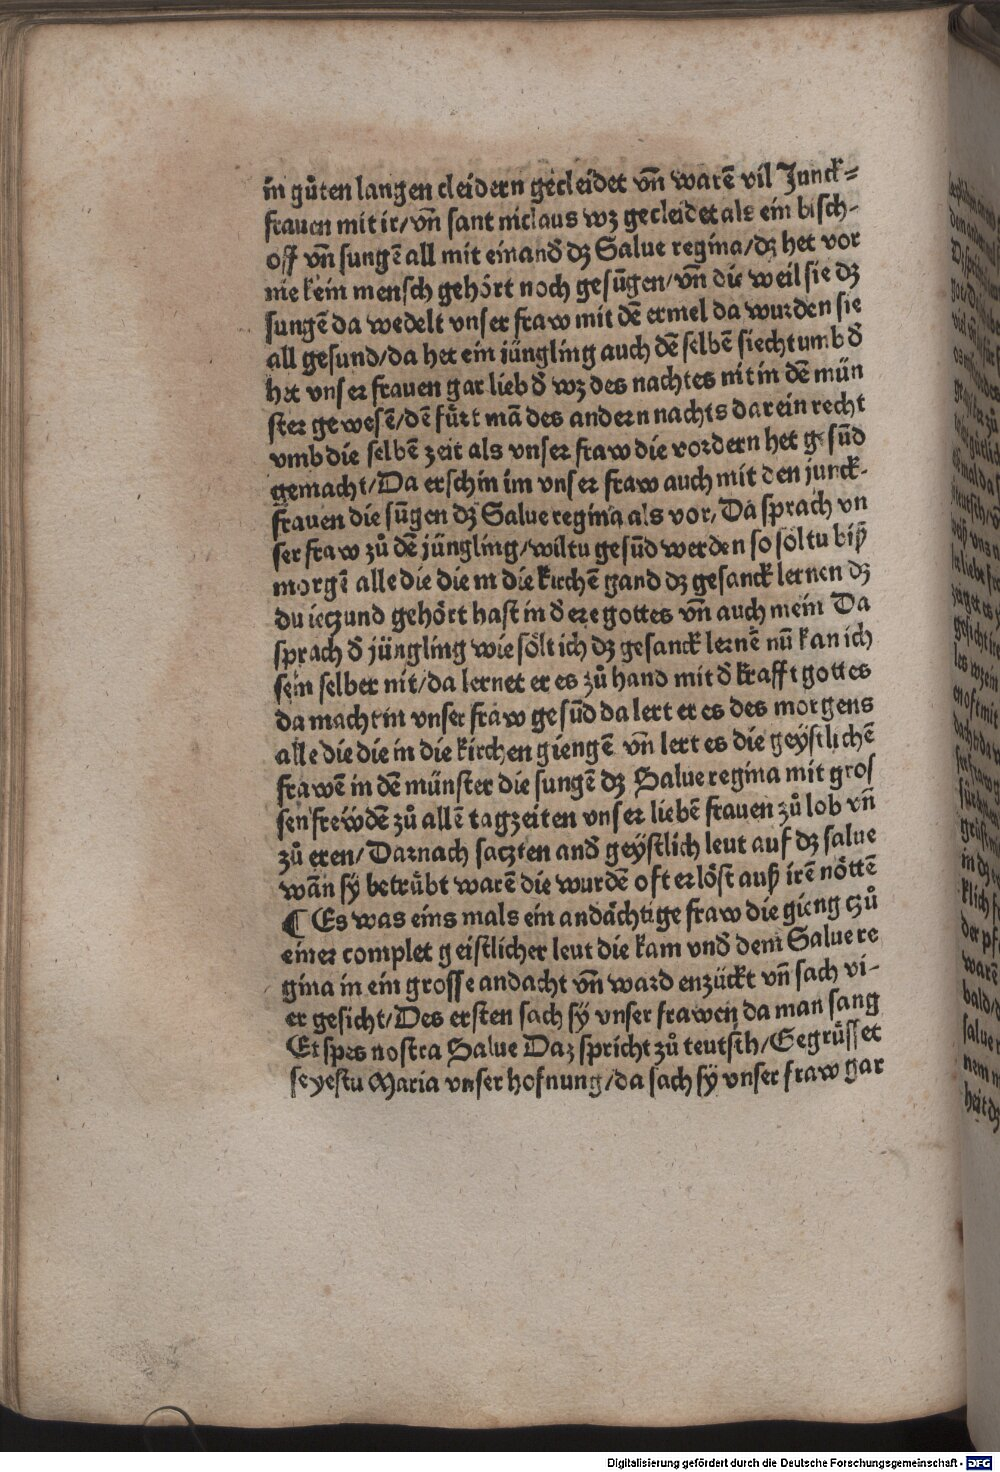 in gůten langen cleidern gecleidet vñ warẽ vil Junck⸗
frauen mit ir/ vñ sant niclaus wz gecleidet als ein bisch-
off vñ sungẽ all mit einand̕ dz Salue regina/ dz het vor
nie kein mensch gehört noch gesũgen/ vñ die weil sie dz
sungẽ da wedelt vnser fraw mit dẽ ermel da wurden sie
all gesund/ da het ein jüngling auch dẽ selbẽ siechtumb d̕
het vnser frauen gar lieb d̕ wz des nachtes nit in dẽ mün
ster gewesẽ/ dẽ fůrt mã des andern nachts darein recht
vmb die selben zeit als vnser fraw die vordern het gesũd
gemacht/ Da erschin im vnser fraw auch mit den junck-
frauen die sũgen dz Salue regina als vor/ Da sprach vn
ser fraw zů dẽ jüngling/ wiltu gesũd werden so soltu biß
morgẽ alle die die in die kirchẽ gand dz gesanck lernen dz
du ieczund gehört hast in d̕ ere gottes vñ auch mein Da
sprach d̕ jüngling wie sölt ich dz gesanck lernẽ nũ kan ich
sein selber nit/ da lernet er es zů hand mit d̕ krafft gottes
da macht in vnser fraw gesũd da lert er es des morgens
alle die die in die kirchen giengẽ vñ lert es die geystlichẽ
frawẽ in dẽ münster die sungẽ dz Salue regina mit gros
sen frewdẽ zů allẽ tagzeiten vnser liebẽ frauen zů lob vñ
zů eren/ Darnach saczten and̕ geystlich leut auf dz salue
wãn sy betrůbt warẽ die wurdẽ oft erlöst auß irẽ nöttẽ
¶ Es was eins mals ein andächtige fraw die gieng czů
einer complet geistlicher leut die kam vnd̕ dem Salue re
gina in ein grosse andacht vñ ward enzückt vñ sach vi-
er gesicht/ Des ersten sach sy vnser frawen da man sang
Et spes nostra Salue Daz spricht zů teutsch/ Gegrůsset
seyestu Maria vnser hofnung/ da sach sy vnser fraw gar
Digitalisierung gefördert durch die Deutsche Forschungsgemeinschaft - DFG